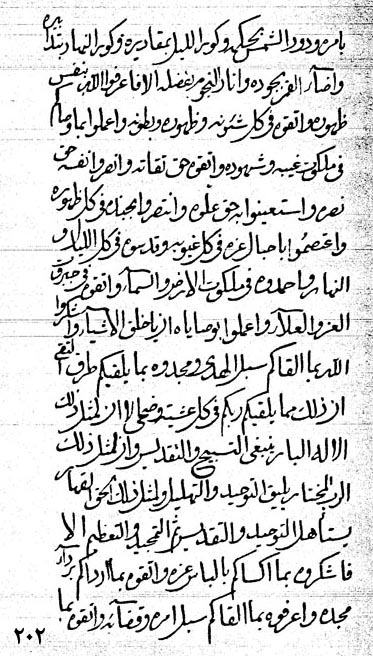 بامره ودور الشمس بحكمه وكور الليل بمقاديره وكور النهار بتدابيره
واضآء القمر بجوده وانار النجوم بفضله الا فاعرفوا الله بنفس
ظهوره واتقوه فى كل شئونه وظهوره وبطونه واعلموا بما وصاكم
فى ملكوت غيبه وشهوده واتقوه حق تقاته وانصروا نفسه حق
نصره واستعينوا به حق علوه وانتصروا بمجده فى كل ظهوره
واعتصموا باحبال عزه فى كل غيوبه وقدسوه فى كل الليل و
النهار واحمدوه فى ملكوت الارض والسمآء واتقوه فى جبروت
العز والعلآء واعملوا بوصاياه اذ ياخلق الاشيآء واشكروا
الله بما القاكم سبل الهدى ومجدوه بما يلقيكم طرق التقى
ان ذلك مما يلقيكم ربكم فى كل عشية وضحى الا ان لمثل ذلك
الاله البار ينبغى التسبيح والتقديس وان لمثل ذلك
الرب المختار يليق التوحيد والتهليل ولمثل ذلك الحق القهار
يستاهل التوحيد والتقديس ثم التمجيد والتعظيم الا
فاشكروه بما اكساكم بالباس عزه واتقوه بما ارداكم بردآء
مجده واعرفوه بما القاكم سبل امره وقضآئه واتقوه بما
٢٠٢